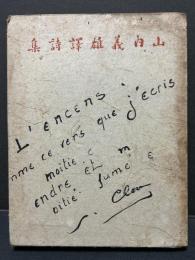 集詩譯雄義内山
L'encens
mme ce vers que j'écris
moitié c
endre et m
oitié fumée